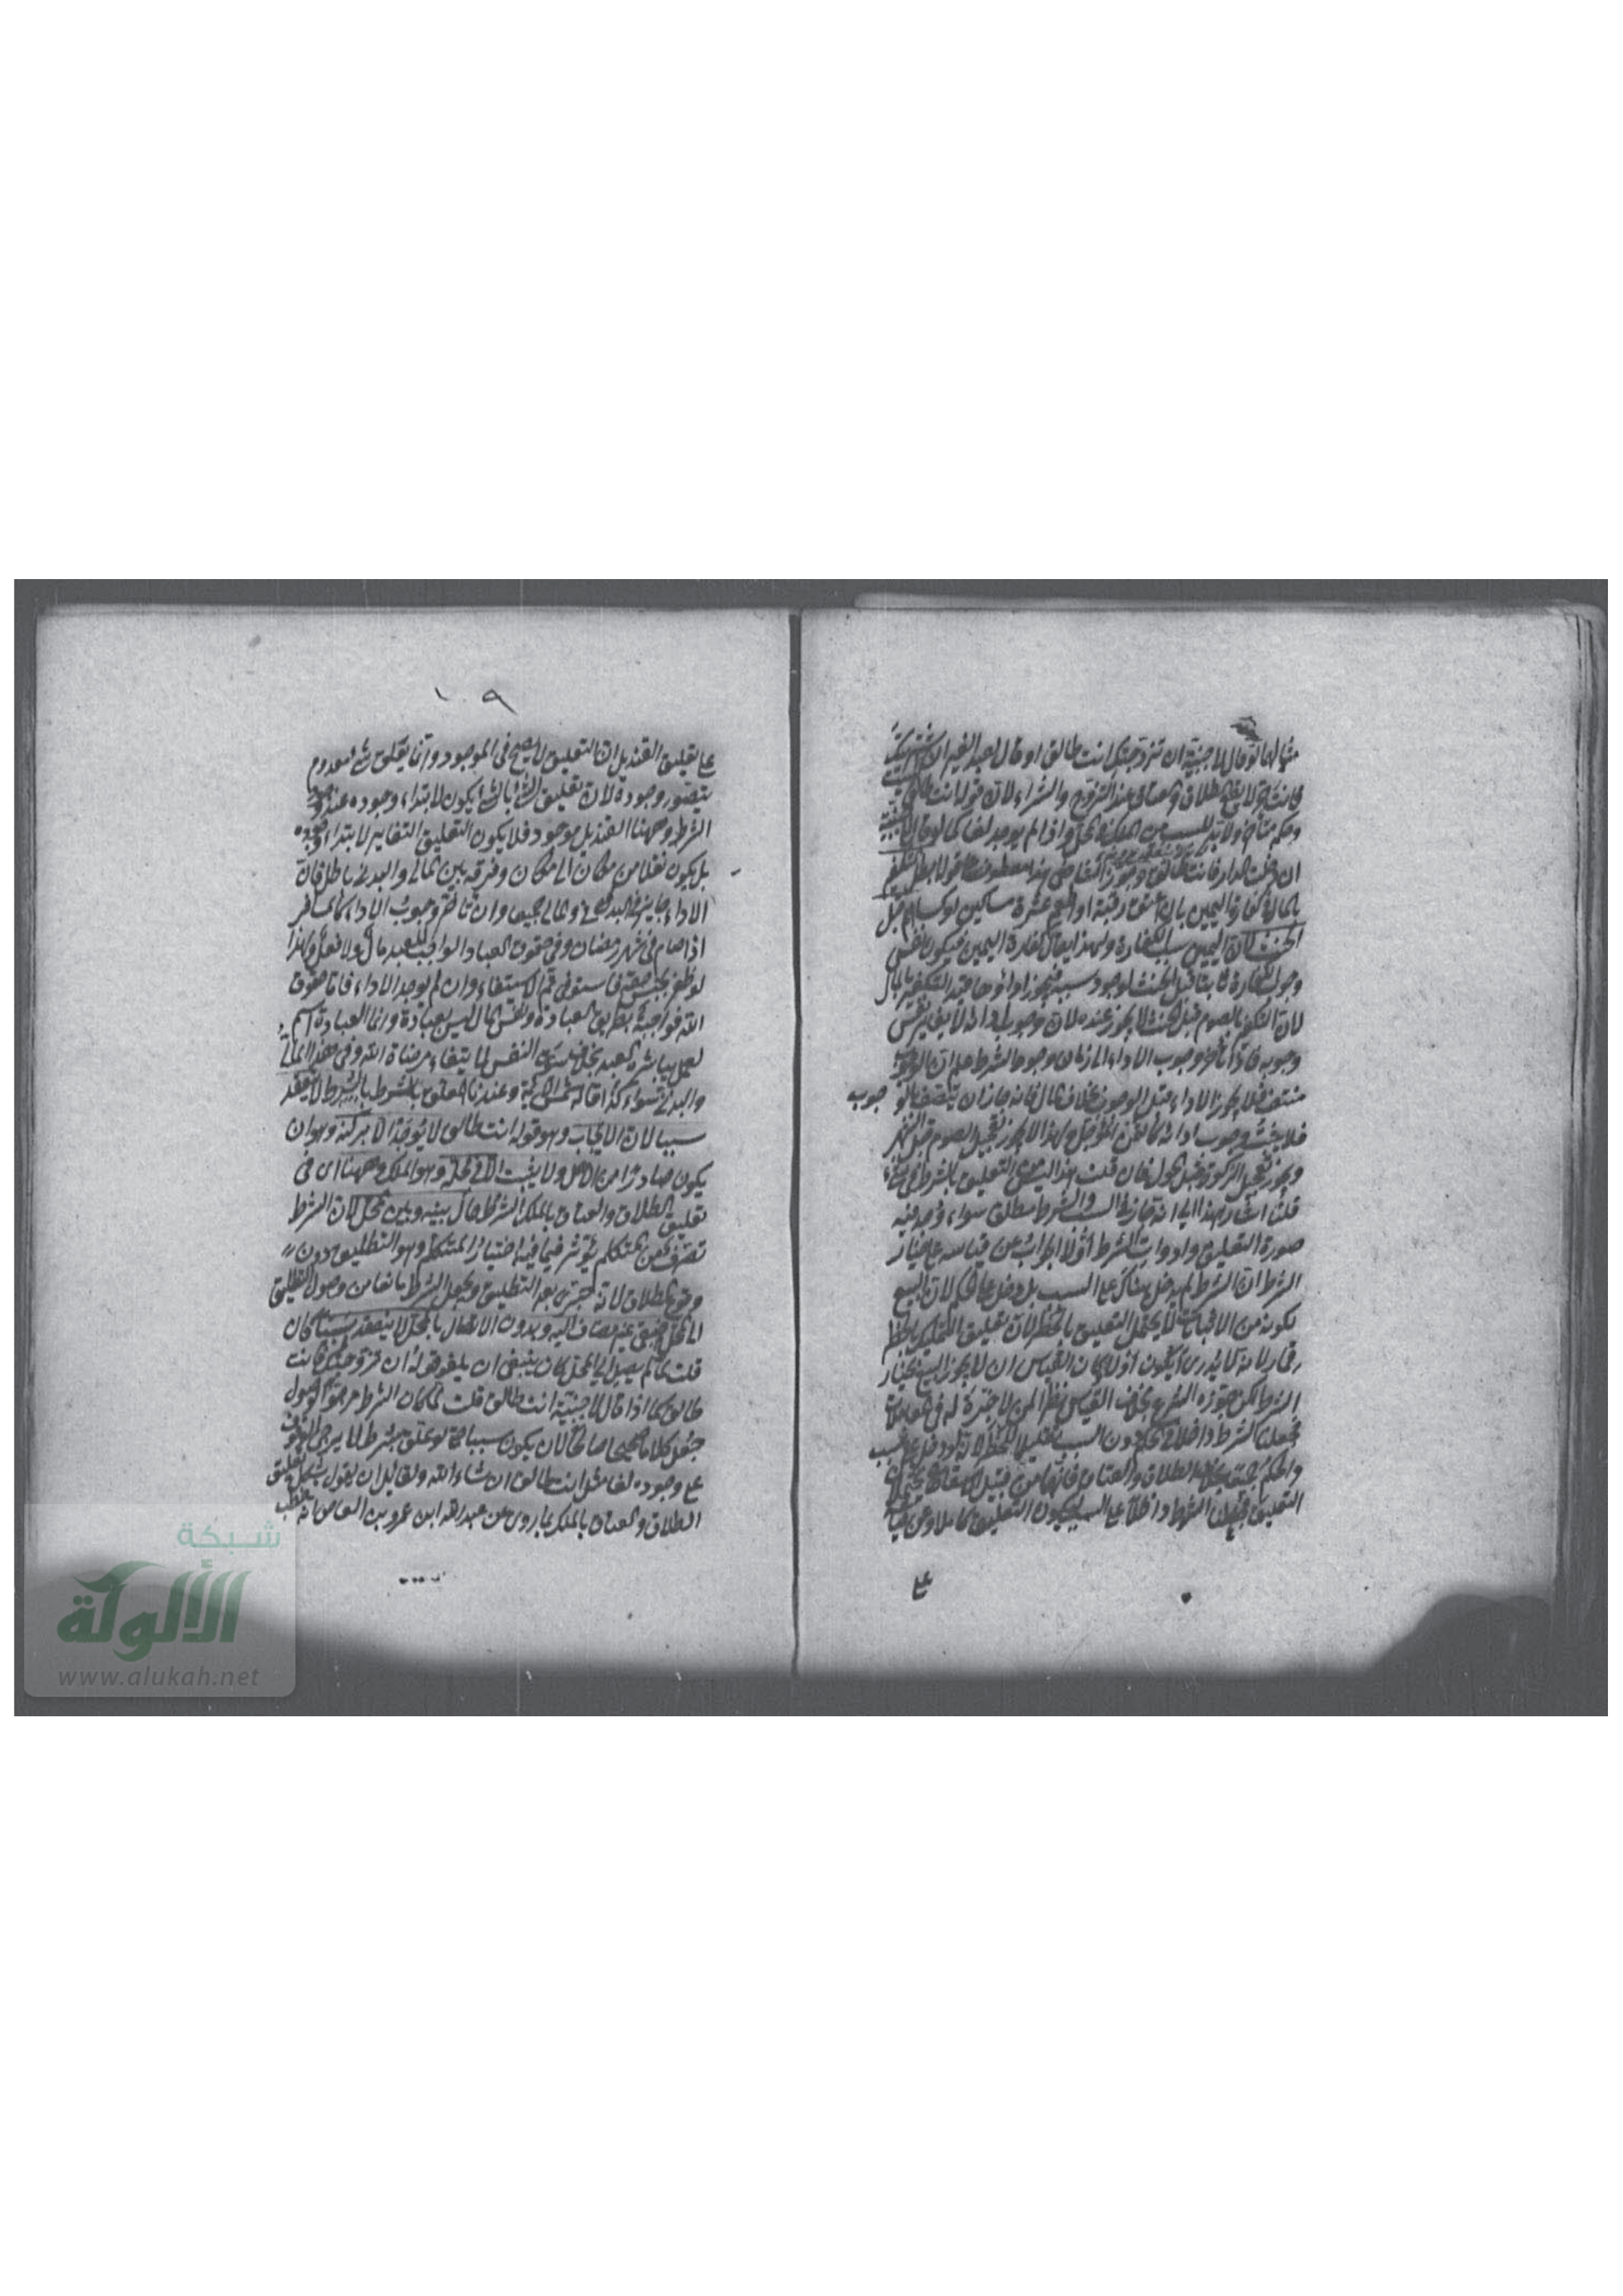 مثالها لو قال لاجنبية ان تزوجتك انت طالق او قال لعبد الغير ان اشتريتك
فانت حر لا يقع الطلاق والعتاق عند التزوج والشراء لان قوله انت طالق سبب
وحكمه متأخر ولا بد للسبب من الملك في المحل واذا لم يوجد لغا كما لو قال لاجنبية
ان دخلت الدار فانت طالق وجوز التكفير
بالمال في كفارة اليمين بان اعتق رقبة او اطعم عشرة مساكين او كساهم قبل
الحنث لان اليمين سبب الكفارة ولهذا يقال كفارة اليمين فيكون نفس
وجوب الكفارة ثابتا قبل الحنث لوجود سببه فيجوز اداؤها قيد التكفير بالمال
لان التكفير بالصوم قبل الحنث لا يجوز عنده لان وجوب ادائه لا يغاير نفس
وجوبه فاذا تأخر وجوب الاداء الى زمان وجود الشرط علم ان الوجوب
منتف فلا يجوز الاداء قبل الوجوب بخلاف المال فانه جاز ان يتصف بالو جوب
فلا يثبت وجوب ادائه كالثمن المؤجل ولهذا لا يجوز تعجيل الصوم قبل الشهر
ويجوز تعجيل الزكوة قبل الحول فان قلت هذا ليس من التعليق بالشرط في شئ
قلت اشار بهذا الى انه جاز في السبب والشرط مطلق سواء وجد فيه
صورة التعليق وادوات الشرط اولا الجواب عن قياسه على خيار
الشرط ان الشرط لم يدخل هناك على السبب بل دخل على الحكم لان البيع
لكونه من الاثباتات لا يحتمل التعليق بالخطر لان تعليق التمليك بالخطر
قمار لانه لا يدرى أيكون اولا فكان القياس ان لا يجوز البيع بخيار
الشرط لكن جوزه الشرع بخلاف القياس نظرا لمن لا خبرة له في المعاملات
فجعلنا الشرط داخلا في الحكم دون السبب تقليلا للخطر لانه لو دخل على السبب
والحكم جميعا بخلاف الطلاق والعتاق فانهما من قبيل الاسقاطات يحتملان
التعليق فجعلنا الشرط داخلا على السبب ليكون التعليق كاملا وعن قياسه
على
١٠٩
على تعليق القنديل ان التعليق لا يصح في الموجود وانما يعلق شئ معدوم
يتصور وجوده لان تعليق الشئ بالشئ يكون لابتداء وجوده عند وجود
الشرط وههنا القنديل موجود فلا يكون التعليق لابتداء وجوده
بل يكون نقلا من مكان الى مكان وفرقه بين المالى والبدنى باطل فان
الاداء جايز في البدنى والمالى جميعا وان تأخر وجوب الاداء كالمسافر
اذا صام في شهر رمضان وفي حقوق العباد الواجب للعبد مال لا فعل ولهذا
لو ظفر بجنس حقه فاستوفى تم الاستيفاء وان لم يوجد الاداء فاما حقوق
الله فواجبة بطريق العبادة ونفس المال ليس بعبادة وانما العبادة اسم
لعمل يباشره العبد بخلاف هوى النفس لابتغاء مرضاة الله وفي هذا المالى
والبدنى سواء كذا قاله شمس الائمة وعندنا المعلق بالشرط لا ينعقد
سببا لان الايجاب وهو قوله انت طالق لا يوجد الا بركنه وهو ان
يكون صادرا من الاهل ولا يثبت الا في محله وهو الملك وههنا اى في
تعليق الطلاق والعتاق بالملك الشرط حال بينه وبين المحل لان الشرط
تصرف من المتكلم يؤثر فيما فيه اختيار المتكلم وهو التطليق دون
وقوع الطلاق لانه جبرى بعد التطليق فيجعل الشرط مانعا من وصول التطليق
الى المحل فبقى غير مضاف اليه وبدون الاتصال بالمحل لا ينعقد سببا فان
قلت لما لم يصل الى المحل كان ينبغى ان يلغو قوله ان تزوجتك فانت
طالق كما اذا قال لاجنبية انت طالق قلت لما كان الشرط مرجو الوصول
جعل كلاما صحيحا صالحا لان يكون سببا حتى لو علق بشرط لا يرجى الوقوف
على وجوده لغا مثل انت طالق ان شاء الله ولقائل ان يقول يشكل تعليق
الطلاق والعتاق بالملك بما روى عن عبد الله ابن عمرو بن العاص انه خطب
شبكة
الألوكة
www.alukah.net